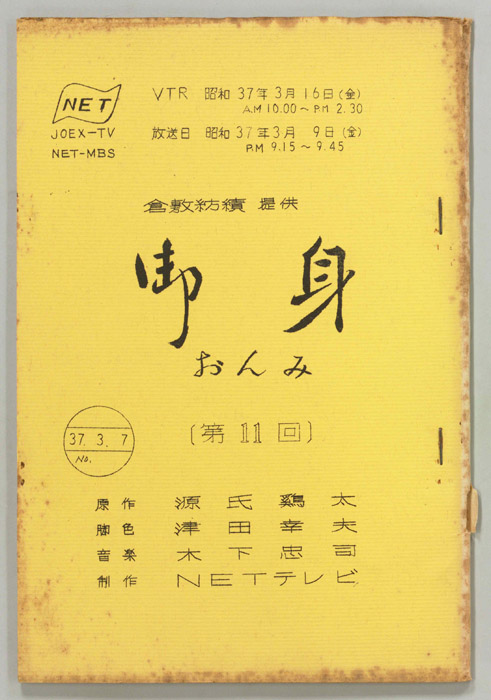 NET
JOEX-TV
NET-MBS
VTR 昭和37年3月16日(金)
A.M 10.00~P.M 2.30
放送日 昭和37年3月 9日(金)
P.M 9.15~9.45
倉敷紡績 提供
御身
おんみ
(第11回)
37. 3. 7
No.
原作 源氏鶏太
脚色 津田幸夫
音楽 木下忠司
制作 NETテレビ